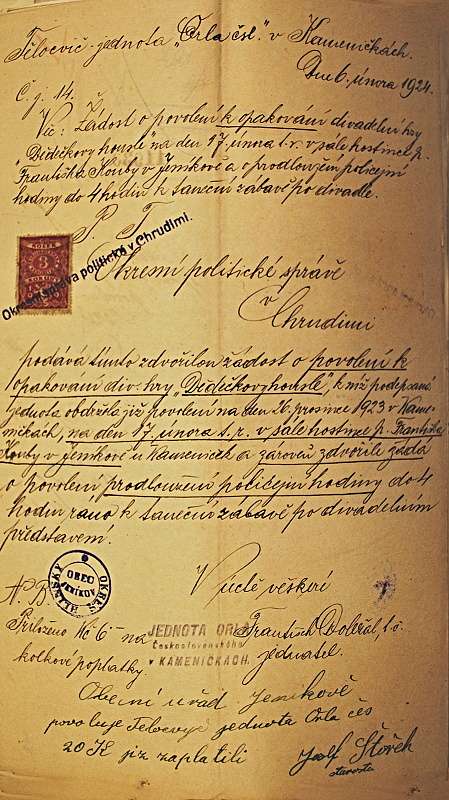 Tělocvič. jednota „Orla čsl." v Kameničkách.
Dne 6. února 1924.
Č. j. 14.
Věc: Žádost o povolení k opakování divadelní hry
„Dědečkovy housle" na den 17. února t. r. v sále hostince p.
Františka Kouby v Jeníkově a o prodloužení policejní
hodiny do 4 hodin k taneční zábavě po divadle.
P. T.
KOLEK
Okresní správa politická v Chrudimi.
Okresní politické správě
v
Chrudimi
podává tímto zdvořilou žádost o povolení k
opakování div. hry „Dědečkovy housle", k níž podepsaná
jednota obdržela již povolení na den 26. prosince 1923 v Kame-
ničkách, na den 17. února t. r. v sále hostince p. Františka
Kouby v Jeníkově u Kameniček a zároveň zdvořile žádá
o povolení prodloužení policejní hodiny do 4
hodin ráno k taneční zábavě po divadelním
představení.
OKRES HLINSKO
OBEC
JENÍKOV
V úctě veškeré
Přiloženo Kč 6 na
kolkové poplatky.
JEDNOTA ORLA
Československého
v KAMENIČKÁCH.
František Doležal, t. č.
jednatel.
Obecní úřad Jeníkově
povoluje Tělocvič. jednota Orla čes
20 Kč již zaplatili
Josef Štořek
starosta